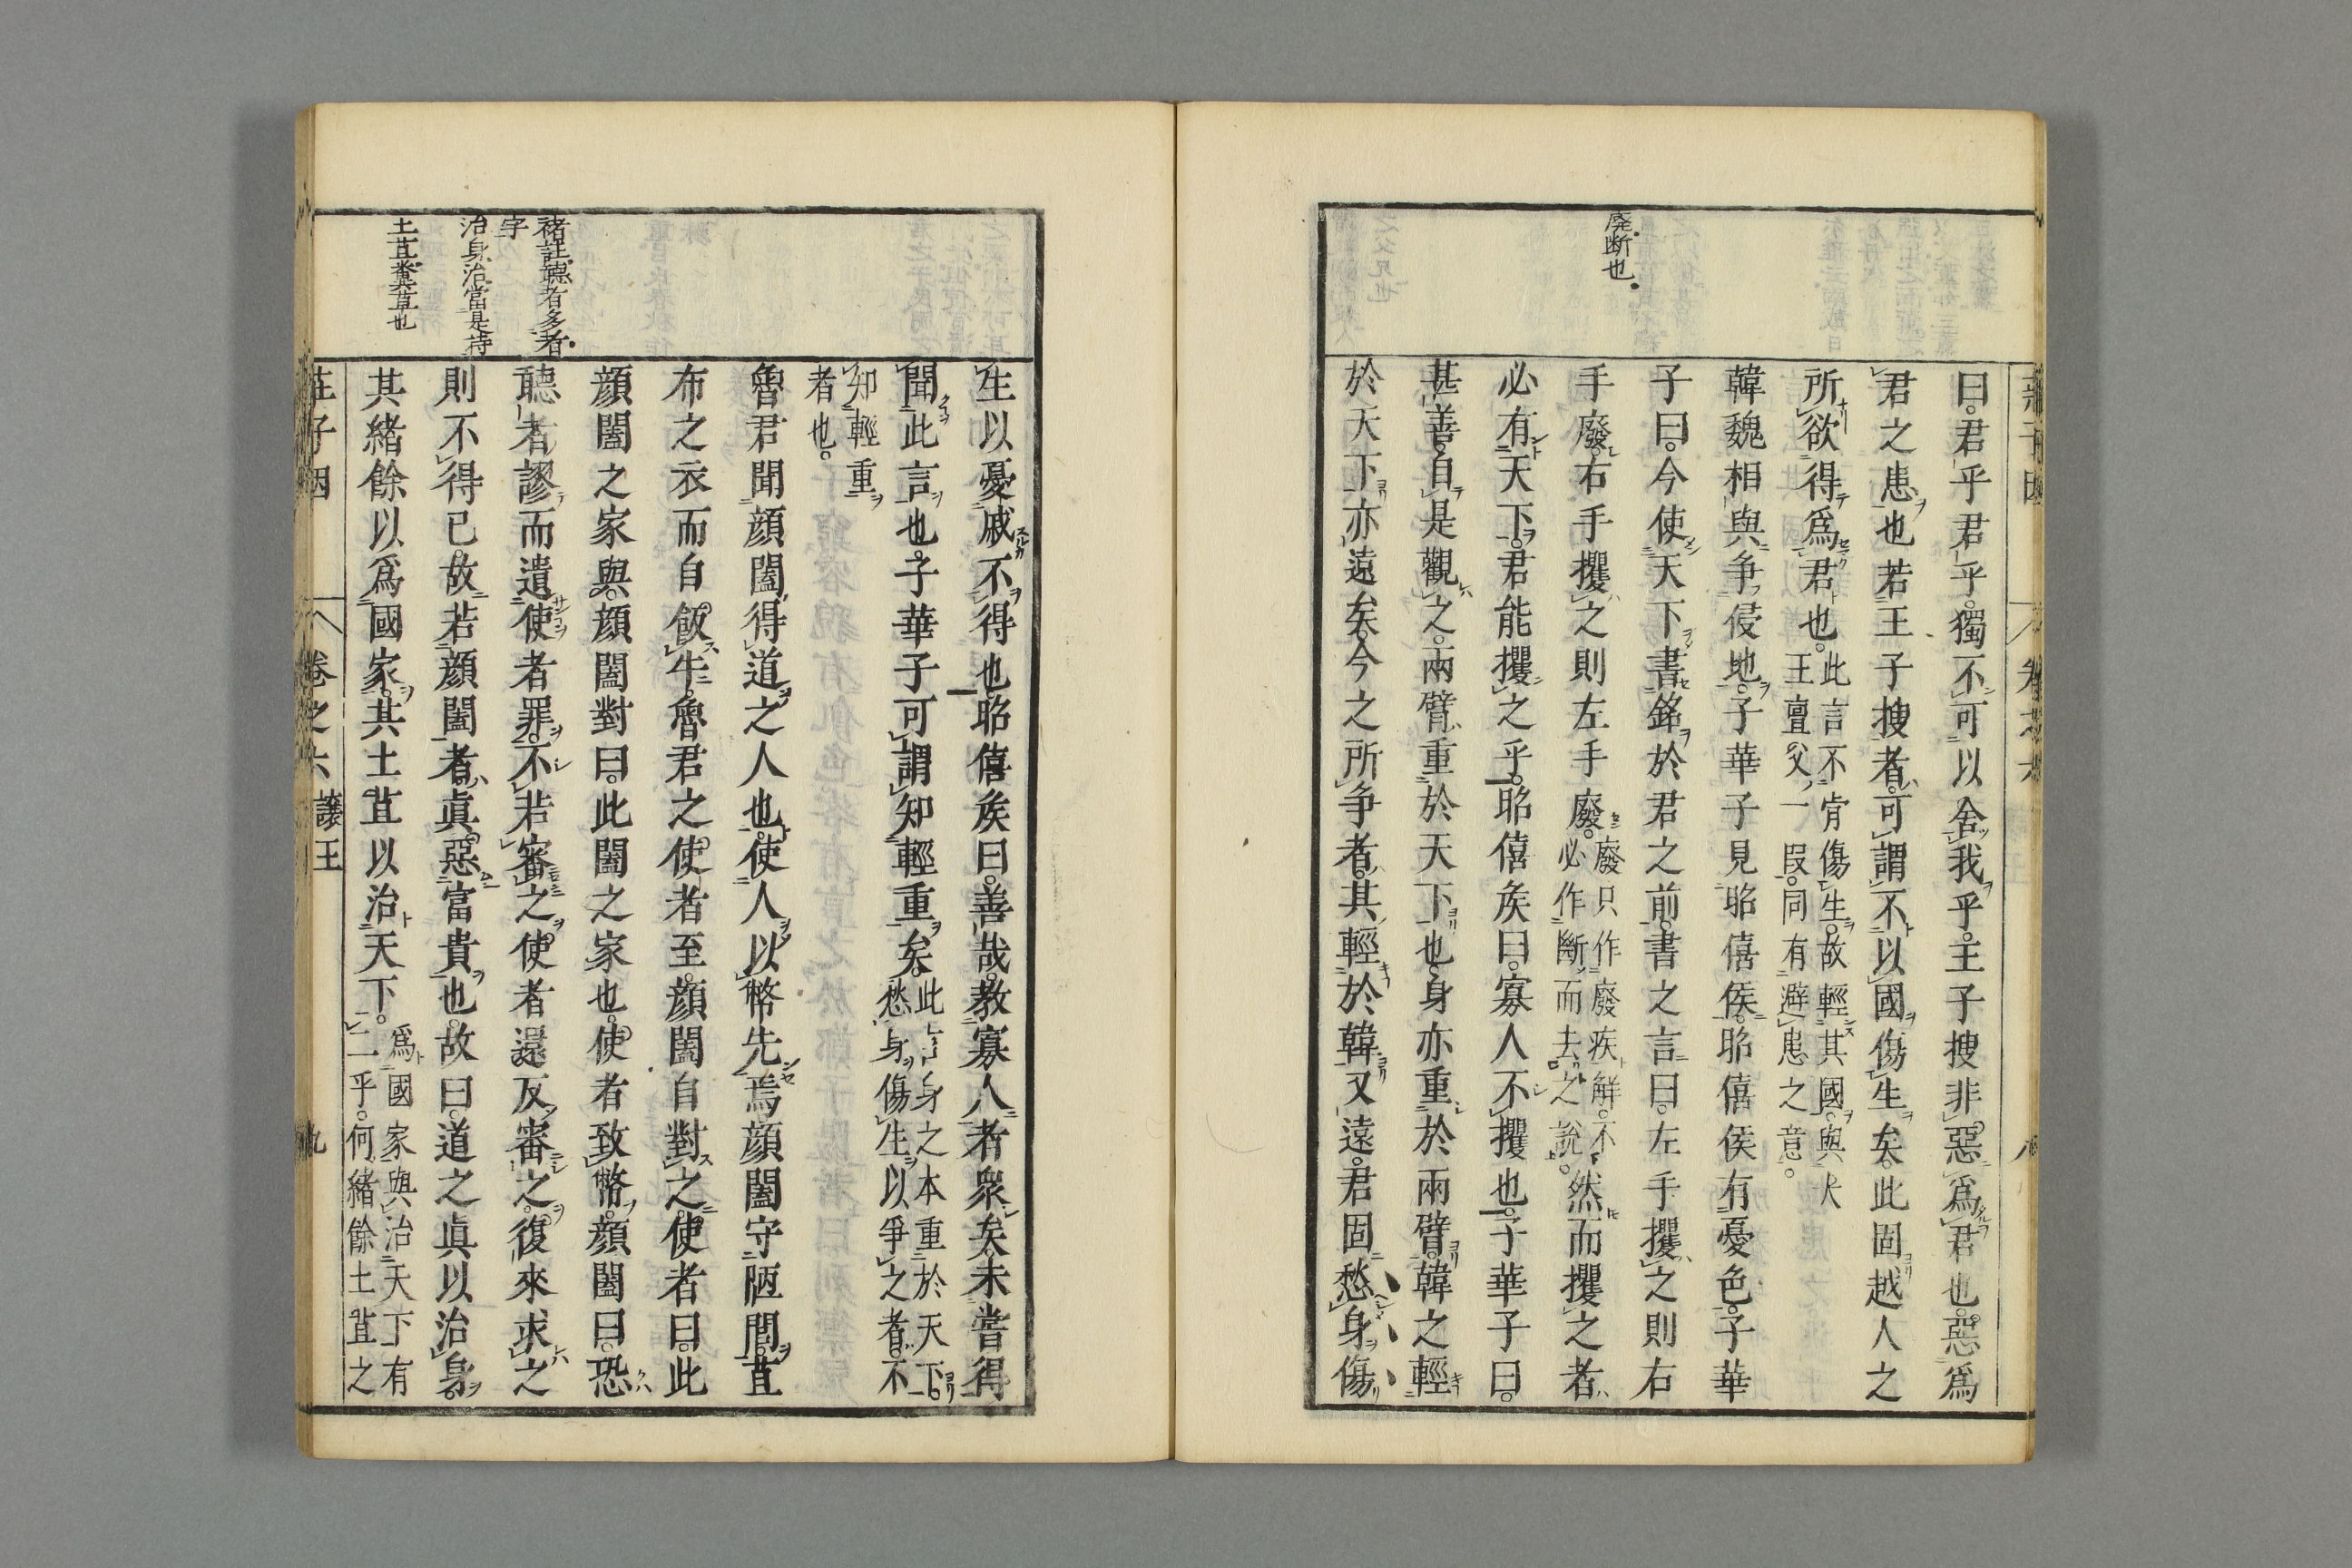 廃断也
曰君乎君乎獨不可以舍我乎王子搜非惡爲君也惡爲
君之患也若王子搜者可謂不以國傷生矣此固越人之
所欲得爲君也
此言不肯傷生故輕其國與犬
王亶父一叚同有避患之意
韓魏相與爭侵地子華子見昭僖侯昭僖侯有憂色子華
子曰今使天下書銘於君之前書之言曰左手攫之則右
手廢右手攫之則左手廢
廢只作廢疾解不然而攫之者
必作斷而去之說
必有天下君能攫之乎昭僖矦曰寡人不攫也子華子曰
甚善自是觀之兩臂重於天下也身亦重於兩臂韓之輕
於天下亦遠矣今之所爭者其輕於韓又遠君固愁身傷
褚註聽者多者
字
治身治當是持
土苴糞草也
生以憂戚不得也昭僖矦曰善哉教寡人者衆矣未嘗得
聞此言也子華子可謂知輕重矣
此言身之本重於天下
愁身傷生以爭之者不
知輕重
者也
魯君聞顔闔得道之人也使人以幣先焉顔闔守陋閭苴
布之衣而自飯牛魯君之使者至顔闔自對之使者曰此
顔闔之家與顔闔對曰此闔之家也使者致幣顔闔曰恐
聽者謬而遺使者罪不若審之使者還反審之復來求之
則不得已故若顔闔者眞惡富貴也故曰道之眞以治身
其緒餘以爲國家其土苴以治天下
爲國家與治天下有
二乎何緒餘土苴之
莊子因 卷之六 讓王 九